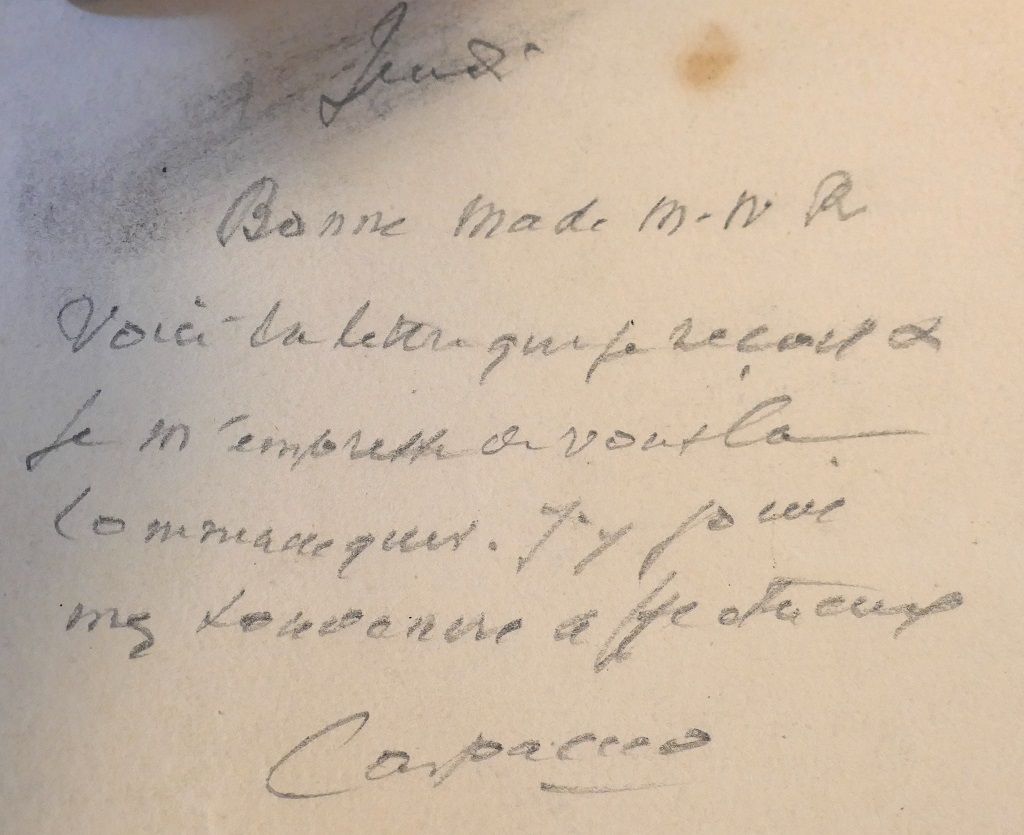 Jeudi
Bonne Made M. N R
Voici la lettre que je reçois &
Je m'empresse de vous la
Communiquer. J'y joins
mes souvenirs affectueux
Carpaccio